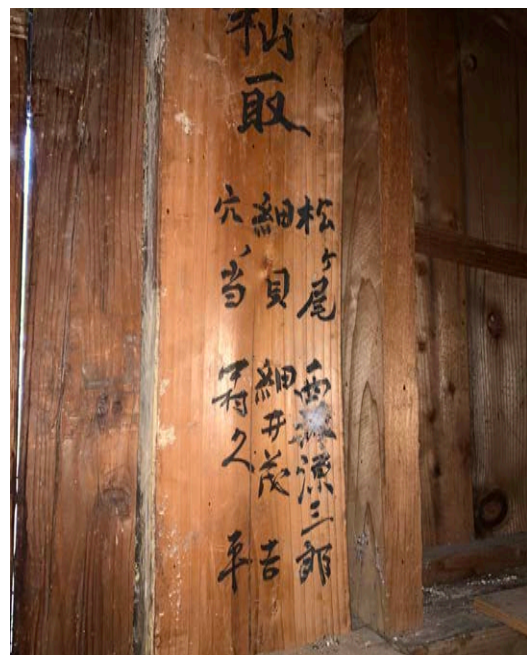 杣取
松ヶ尾 西 源三郎
細貝 細井茂吉
穴ノ当 中村久平